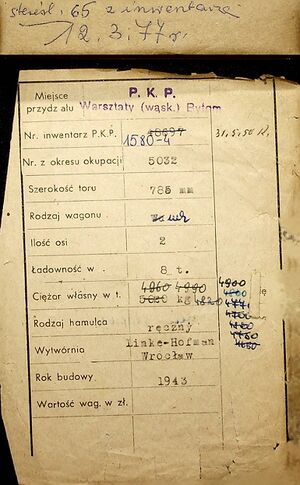 65 z inwentarza
12.3.77 r.
Miejsce P. K. P.
przydz ału Warsztaty (wąsk.) Bytom
Nr. inwentarz P.K.P. 18697 31.5.50 R.
1580-4
Nr. z okresu okupacji 5032
Szerokość toru 785 mm
Rodzaj wagonu
Ilość osi 2
Ładowność w . 8 t.
4960 4990 4900
Ciężar własny w t. 5020 kg 4820 4771
4700
Rodzaj hamulca
ręczny
Wytwórnia Linke-Hofman
Wrocław
Rok budowy 1943
Wartość wag. w zł.